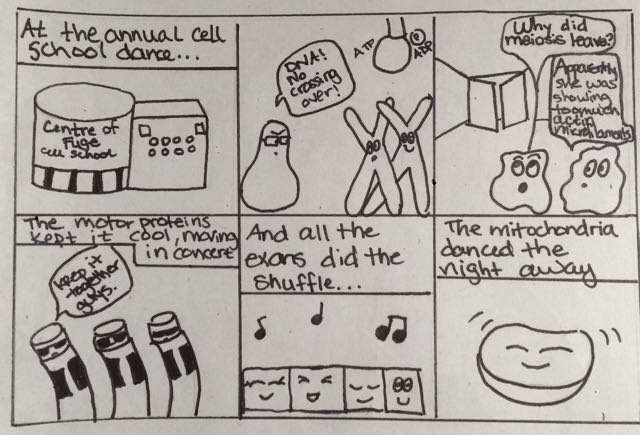 At the annual cell
School dance...
Centre of
Fuge
cell school
DNA!
No
crossing
over!
ATP
ADP
Why did
meiosis leave?
Apparently
she was
showing
too much
actin
microfilaments
The motor proteins
kept it cool, moving
in concert
keep it
together
guys.
And all the
exans did the
shuffle...
The mitochondria
danced the
night away